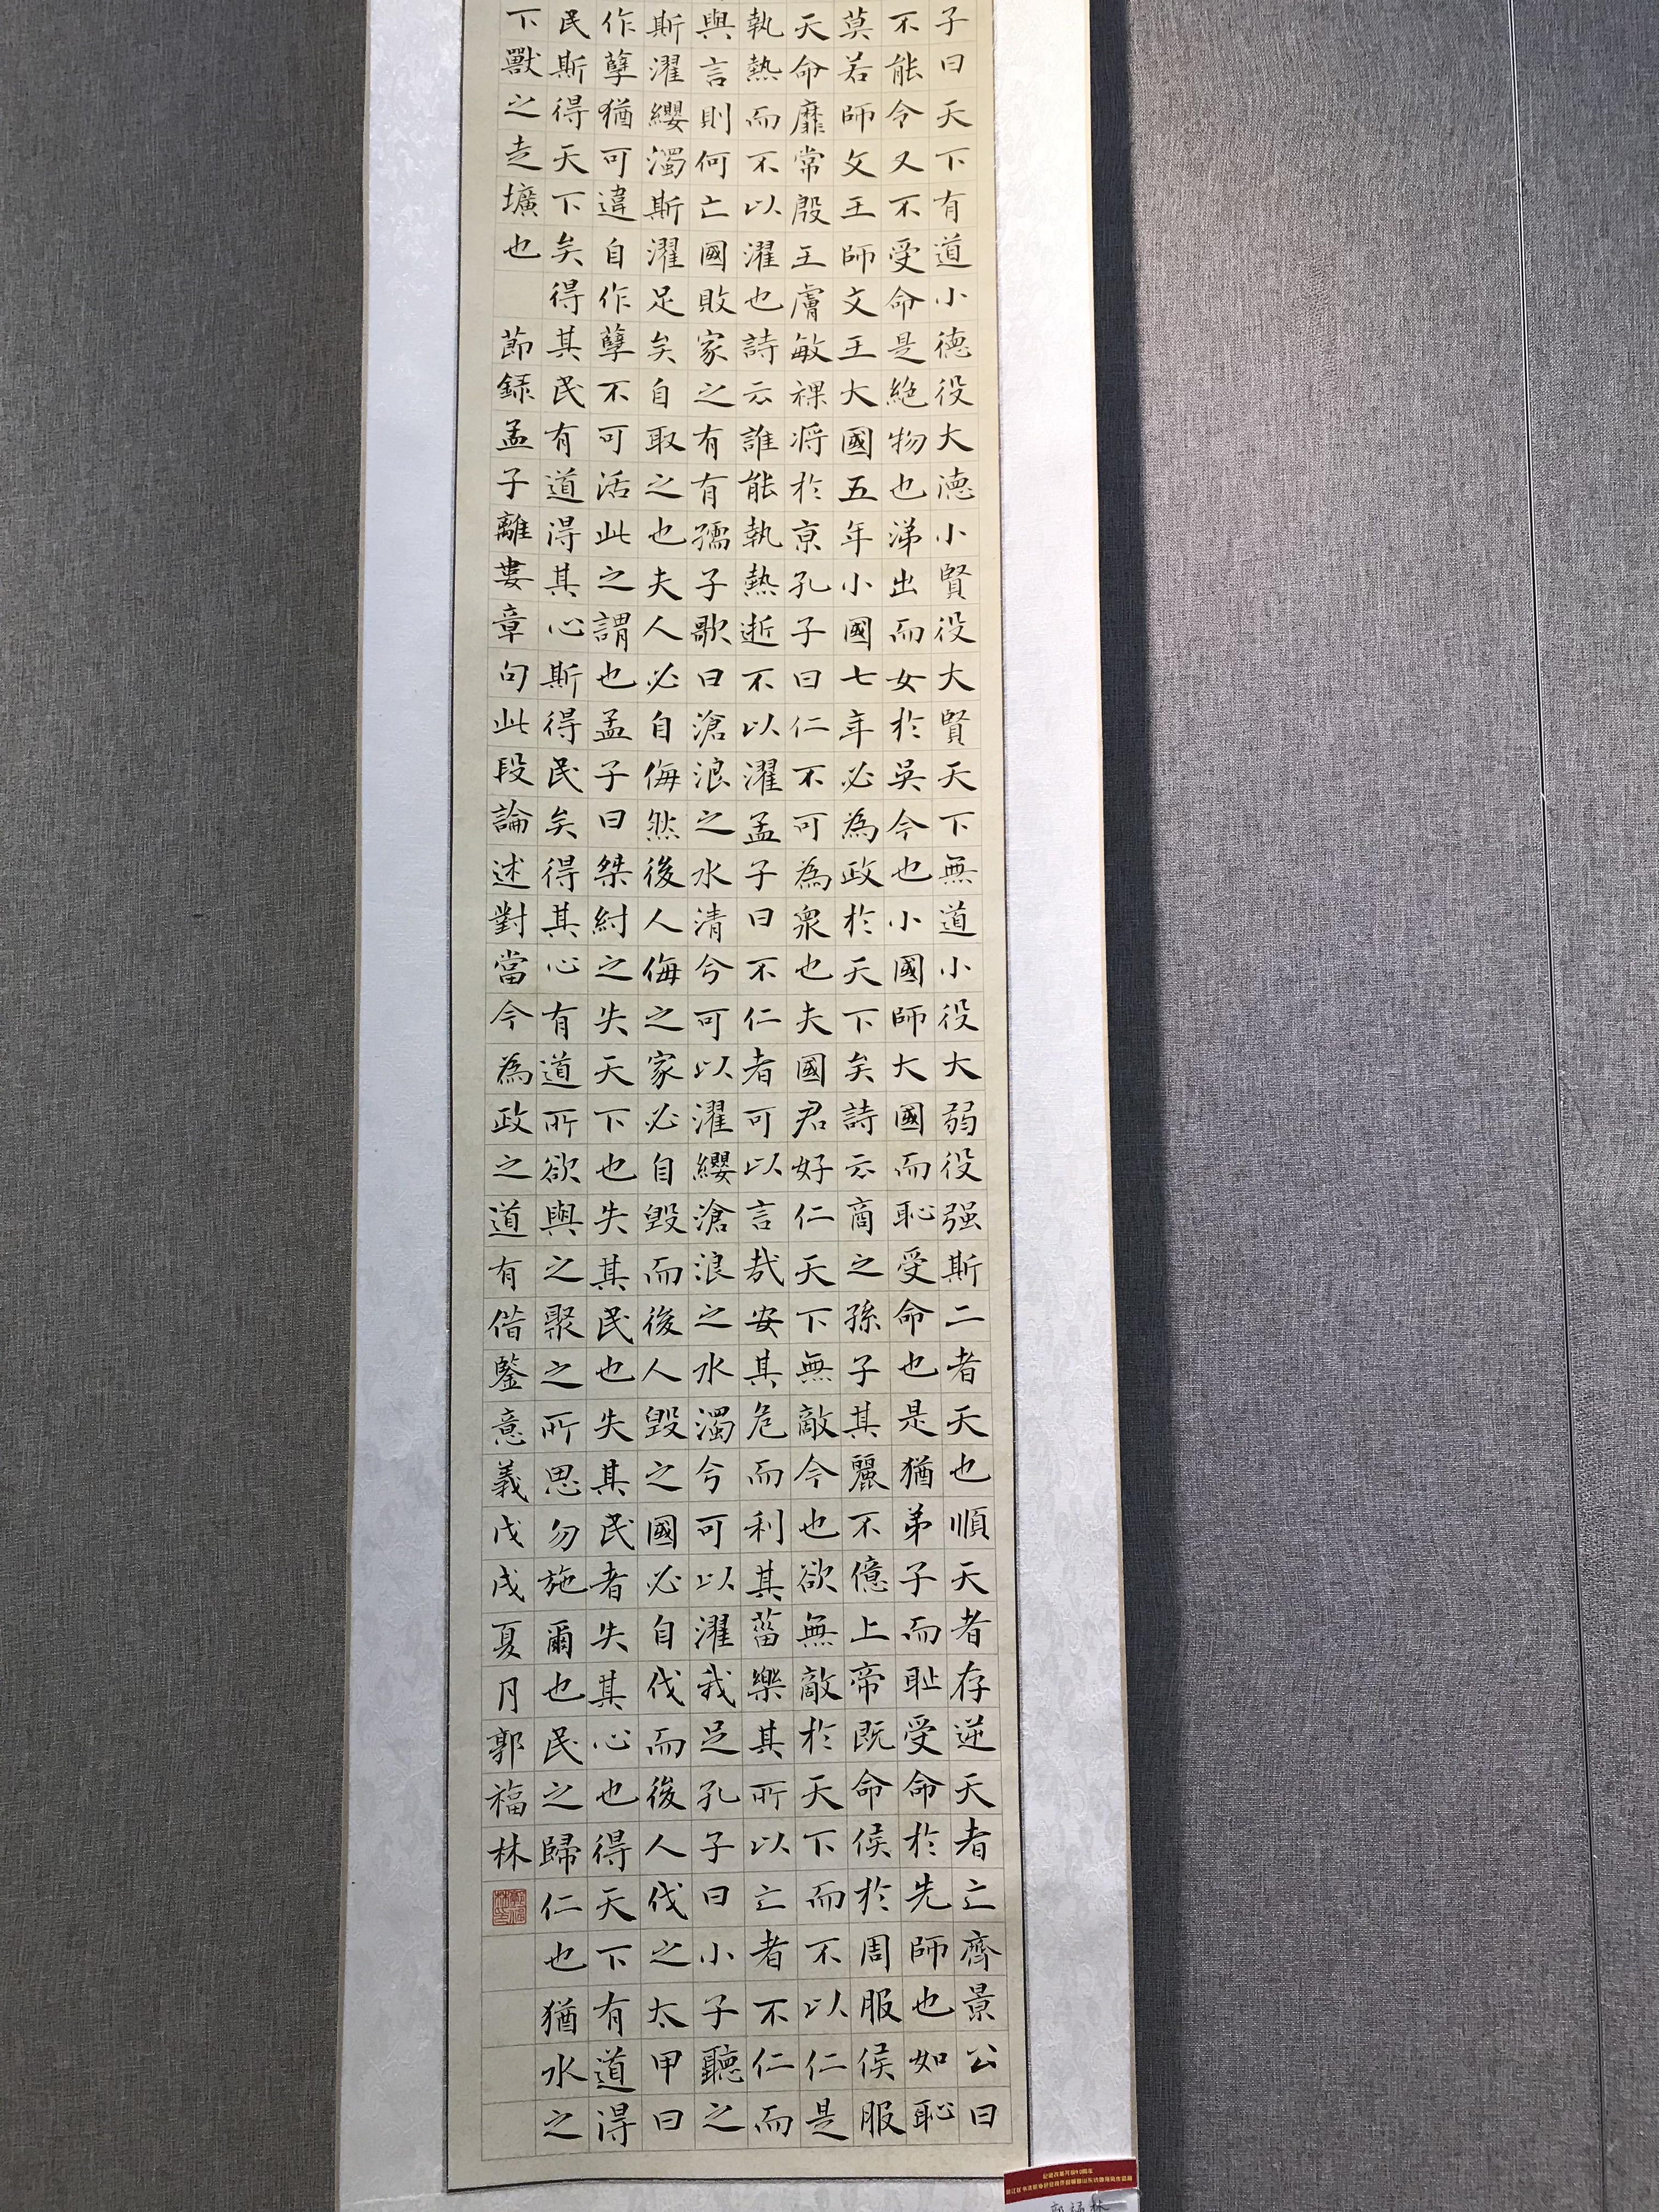 子曰天下有道小德役大德小賢役大賢天下無道小役大弱役强斯二者天也順天者存逆天者亡齊景公曰
不能令又不受命是絕物也涕出而女於吳今也小國師大國而恥受命也是猶弟子而耻受命於先師也如恥
莫若師文王師文王大國五年小國七年必為政於天下矣詩云商之孫子其麗不億上帝既命侯於周服侯服
天命靡常殷王膚敏祼将於京孔子曰仁不可為衆也夫國君好仁天下無敵今也欲無敵於天下而不以仁是
執熱而不以濯也詩云誰能執熱逝不以濯孟子曰不仁者可以言哉安其危而利其菑樂其所以亡者不仁而
與言則何亡國敗家之有有孺子歌曰滄浪之水清兮可以濯纓滄浪之水濁兮可以濯我足孔子曰小子聽之
斯濯纓濁斯濯足矣自取之也夫人必自侮然後人侮之家必自毀而後人毀之國必自伐而後人伐之太甲曰
作孽猶可違自作孽不可活此之謂也孟子曰桀紂之失天下也失其民也失其民者失其心也得天下有道得
民斯得天下矣得其民有道得其心斯得民矣得其心有道所欲與之聚之所思勿施爾也民之歸仁也猶水之
下獸之走壙也 節録孟子離婁章句此段論述對當今為政之道有借鑒意義戊戌夏月郭福林
纪念改革开放40周年
郭福林